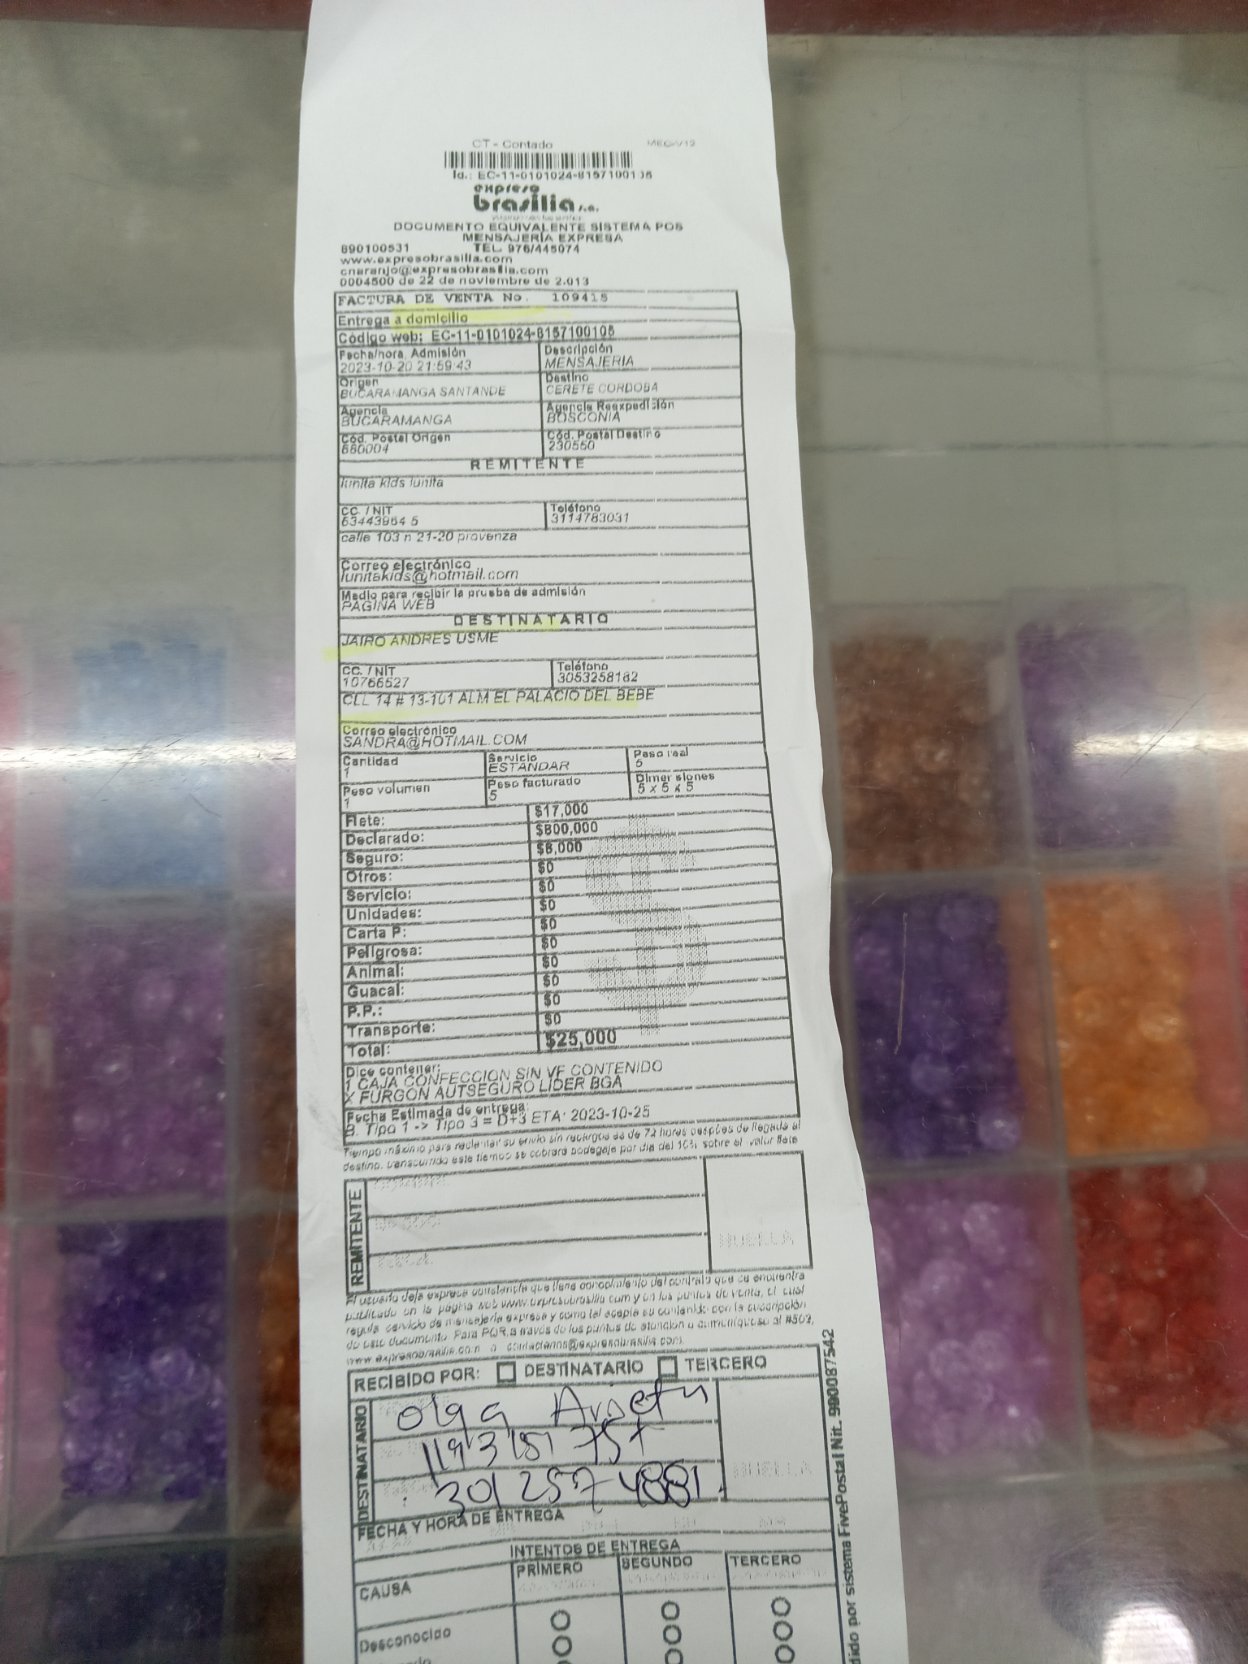 CT - Contado MEC-V12
Id.: EC-11-0101024-8157100105
expreso
brasilia s.a.
DOCUMENTO EQUIVALENTE SISTEMA POS
MENSAJERÍA EXPRESA
890100531 TEL. 976/445074
www.expresobrasilia.com
cnaranjo@expresobrasilia.com
0004500 de 22 de noviembre de 2.013
FACTURA DE VENTA No. 109415
Entrega a domicilio
Código web: EC-11-0101024-8157100105
Fecha/hora Admisión Descripción
2023-10-20 21:59:43 MENSAJERIA
Origen Destino
BUCARAMANGA SANTANDE CERETE CORDOBA
Agencia Agencia Reexpedición
BUCARAMANGA BOSCONIA
Cód. Postal Origen Cód. Postal Destino
680004 230550
REMITENTE
lunita kids lunita
CC. / NIT Teléfono
63443964 5 3114783031
calle 103 n 21-20 provenza
Correo electrónico
lunitakids@hotmail.com
Medio para recibir la prueba de admisión
PAGINA WEB
DESTINATARIO
JAIRO ANDRES USME
CC. / NIT Teléfono
10766527 3053258182
CLL 14 # 13-101 ALM EL PALACIO DEL BEBE
Correo electrónico
SANDRA@HOTMAIL.COM
Cantidad Servicio Peso real
1 ESTANDAR 5
Peso volumen Peso facturado Dimensiones
1 5 5 x 5 x 5
Flete: $17,000
Declarado: $800,000
Seguro: $8,000
Otros: $0
Servicio: $0
Unidades: $0
Carta P: $0
Peligrosa: $0
Animal: $0
Guacal: $0
P.P.: $0
Transporte: $0
Total: $25,000
Dice contener:
1 CAJA CONFECCION SIN VF CONTENIDO
X FURGON AUTSEGURO LIDER BGA
Fecha Estimada de entrega:
B. Tipo 1 -> Tipo 3 = D+3 ETA: 2023-10-25
Tiempo máximo para reclamar su envío sin recargos es de 72 horas después de llegada al
destino, transcurrido este tiempo se cobrará bodegaje por día del 10% sobre el valor flete
REMITENTE
HUELLA
El usuario deja expresa constancia que tiene conocimiento del contrato que se encuentra
publicado en la página web www.expresobrasilia.com y en los puntos de venta, el cual
regula servicio de mensajería expresa y como tal acepta su contenido con la suscripción
de este documento. Para PQR a través de los puntos de atención o comuníquese al #502,
www.expresobrasilia.com o contactenos@expresobrasilia.com
RECIBIDO POR: DESTINATARIO TERCERO
DESTINATARIO
olga
301257 4881
HUELLA
FECHA Y HORA DE ENTREGA
INTENTOS DE ENTREGA
CAUSA PRIMERO SEGUNDO TERCERO
Desconocido
dido por sistema FivePostal Nit. 900087542